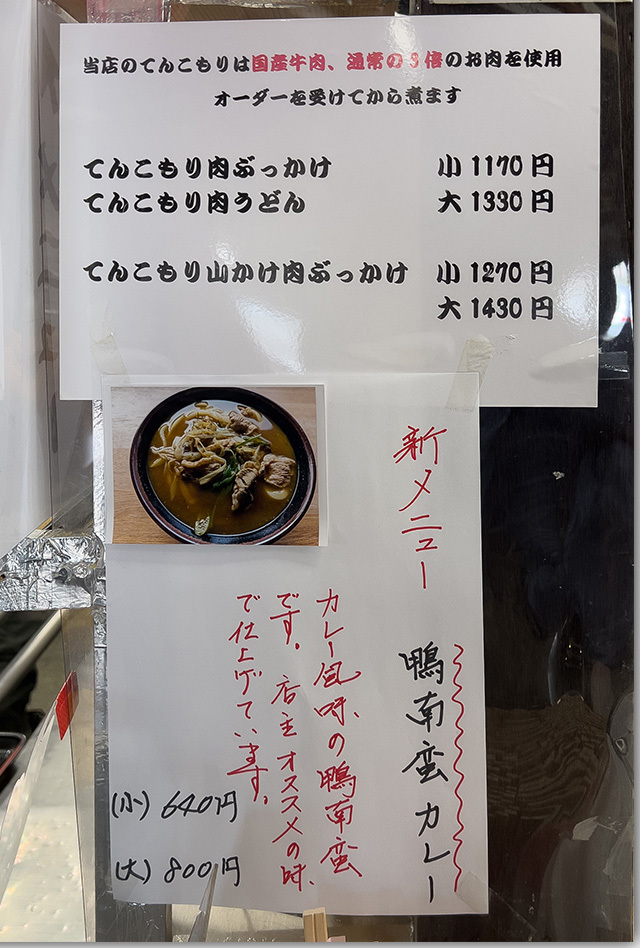 当店のてんこもりは国産牛肉、通常の3倍のお肉を使用
オーダーを受けてから煮ます
てんこもり肉ぶっかけ 小 1170 円
てんこもり肉うどん 大 1330 円
てんこもり山かけ肉ぶっかけ 小 1270 円
大 1430 円
新メニュー 鴨南蛮カレー
カレー風味の鴨南蛮
です。店主オススメの味
で仕上げています。
(小) 640円
(大) 800円